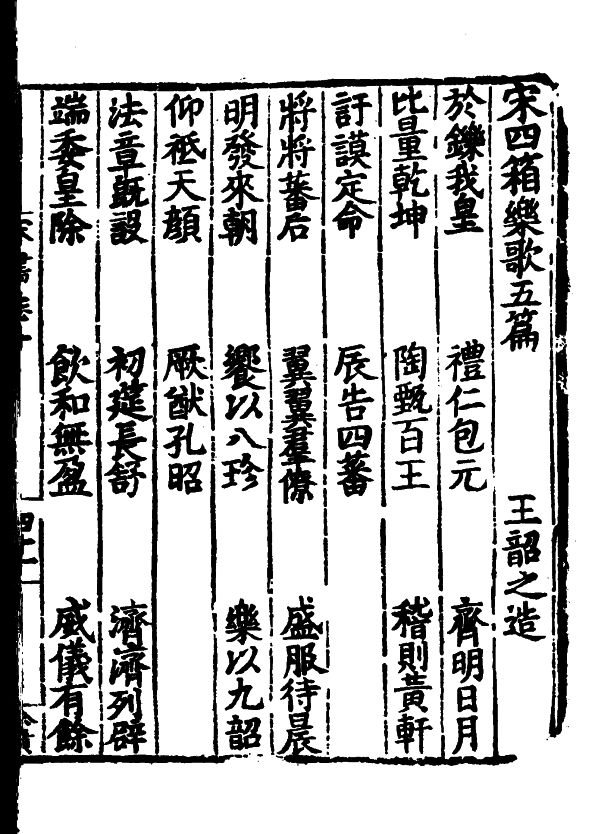 宋四箱樂歌五篇　王韶之造
於鑠我皇　禮仁包元　齊明日月
比量乾坤　陶甄百王　稽則黃軒
訏謨定命　辰告四蕃
將將蕃后　翼翼羣僚　盛服待晨
明發來朝　饗以八珍　樂以九韶
仰祗天顏　厥猷孔昭
法章既設　初筵長舒　濟濟列辟
端委皇除　飲和無盈　威儀有餘